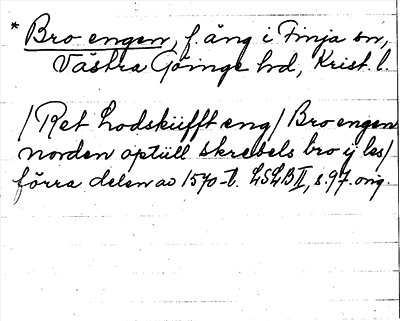 * Bro engen, f. äng i Finja sn,
Västra Göinge hd, Krist. l.
/Ret Lodskiifft eng/ Bro engen
norden optill skrebels bro ij les/
förra delen av 1570-t. LSLB II, s. 97. orig.